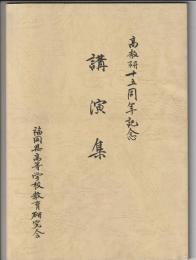 高教研十五周年記念
講演集
福岡県高等学校教育研究会